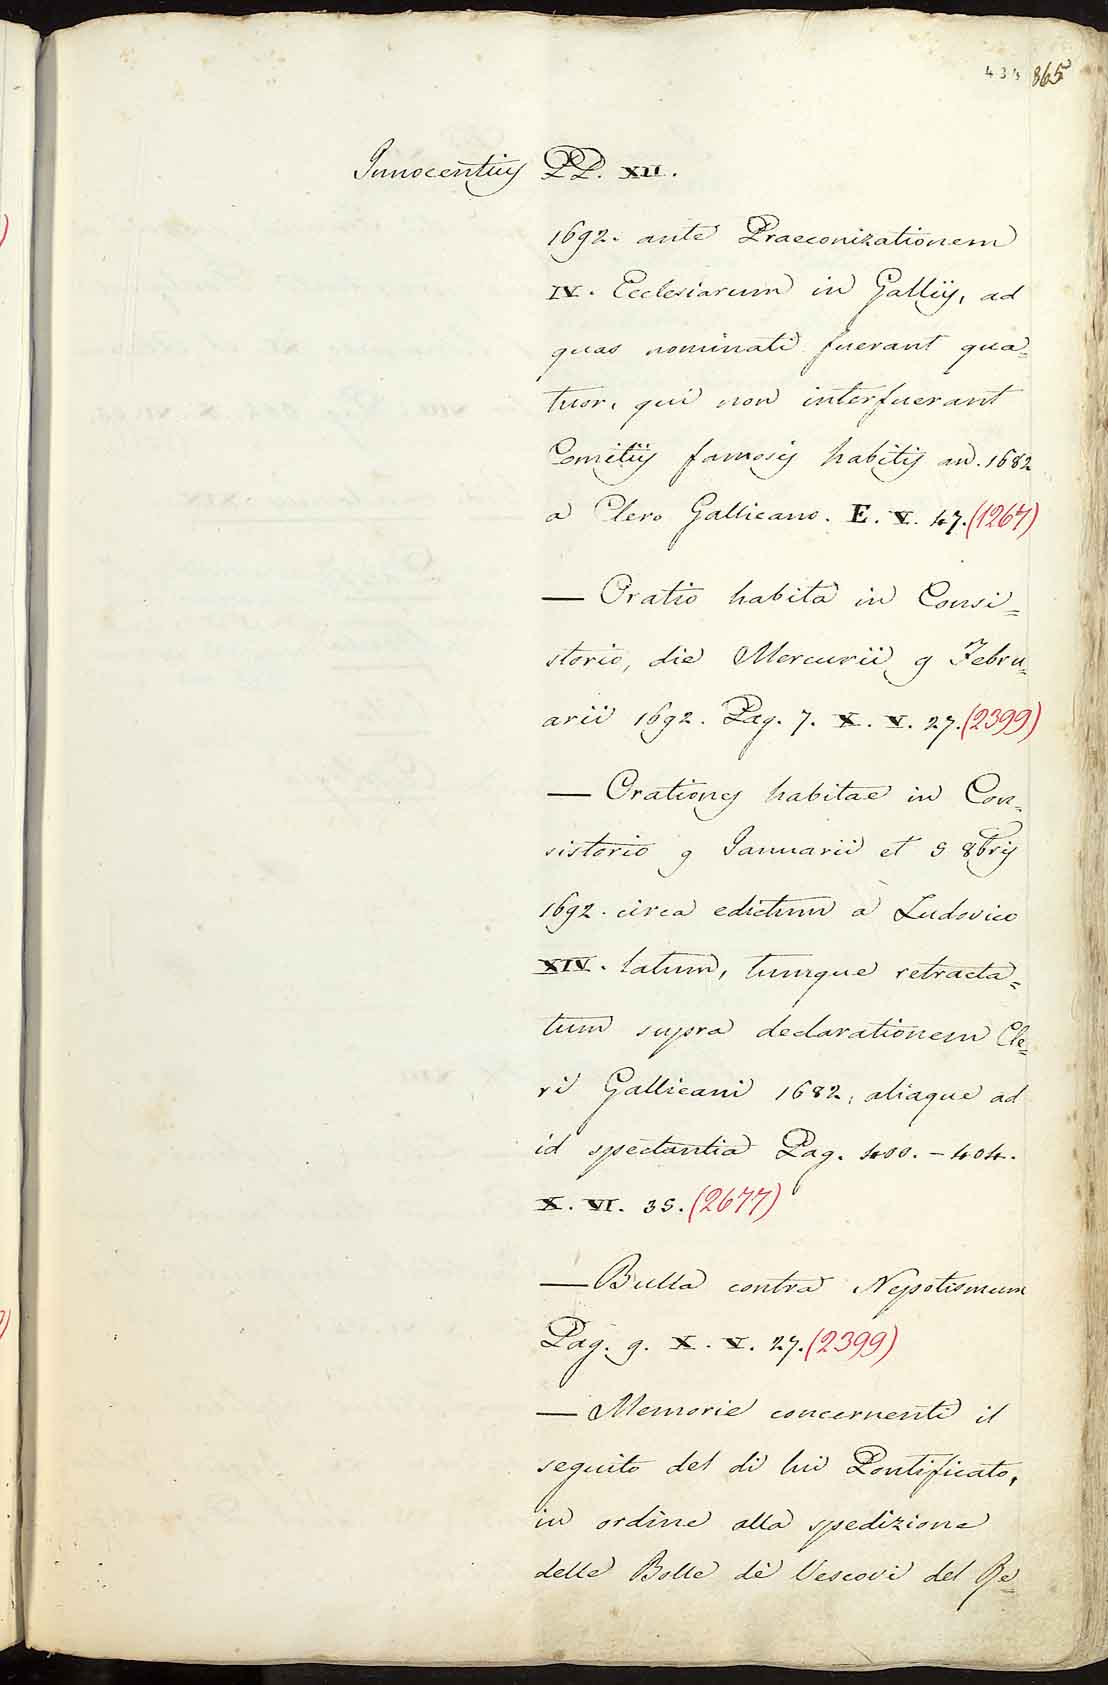 434 865
Innocentius PP. XII.
1692. ante Praeconizationem
IV. Ecclesiarum in Galliis, ad
quas nominati fuerant qua=
tuor, qui non interfuerant
Comitiis famosis habitis an. 1682
a Clero Gallicano. E. V. 47. (1267)
— Oratio habita in Consi=
storio, die Mercurii 9 Febru=
arii 1692. Pag. 7. X. V. 27. (2399)
— Orationes habitae in Con=
sistorio 9 Ianuarii et 5 8bris
1692. circa edictum a Ludovico
XIV. latum, tumque retracta=
tum supra declarationem Cle=
ri Gallicani 1682, aliaque ad
id spectantia Pag. 400. - 404.
X. VI. 35. (2677)
— Bulla contra Nepotismum
Pag. 9. X. V. 27. (2399)
— Memorie concernenti il
seguito del di lui Pontificato,
in ordine alla spedizione
delle Bolle dè Vescovi del Re=